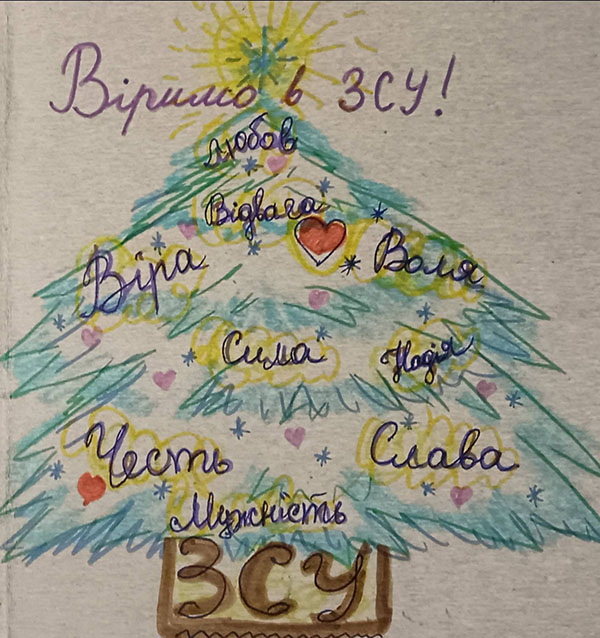 Віримо в ЗСУ!
Любов
Відвага
Віра
Воля
Сила
Надія
Честь
Слава
Мужність
ЗСУ